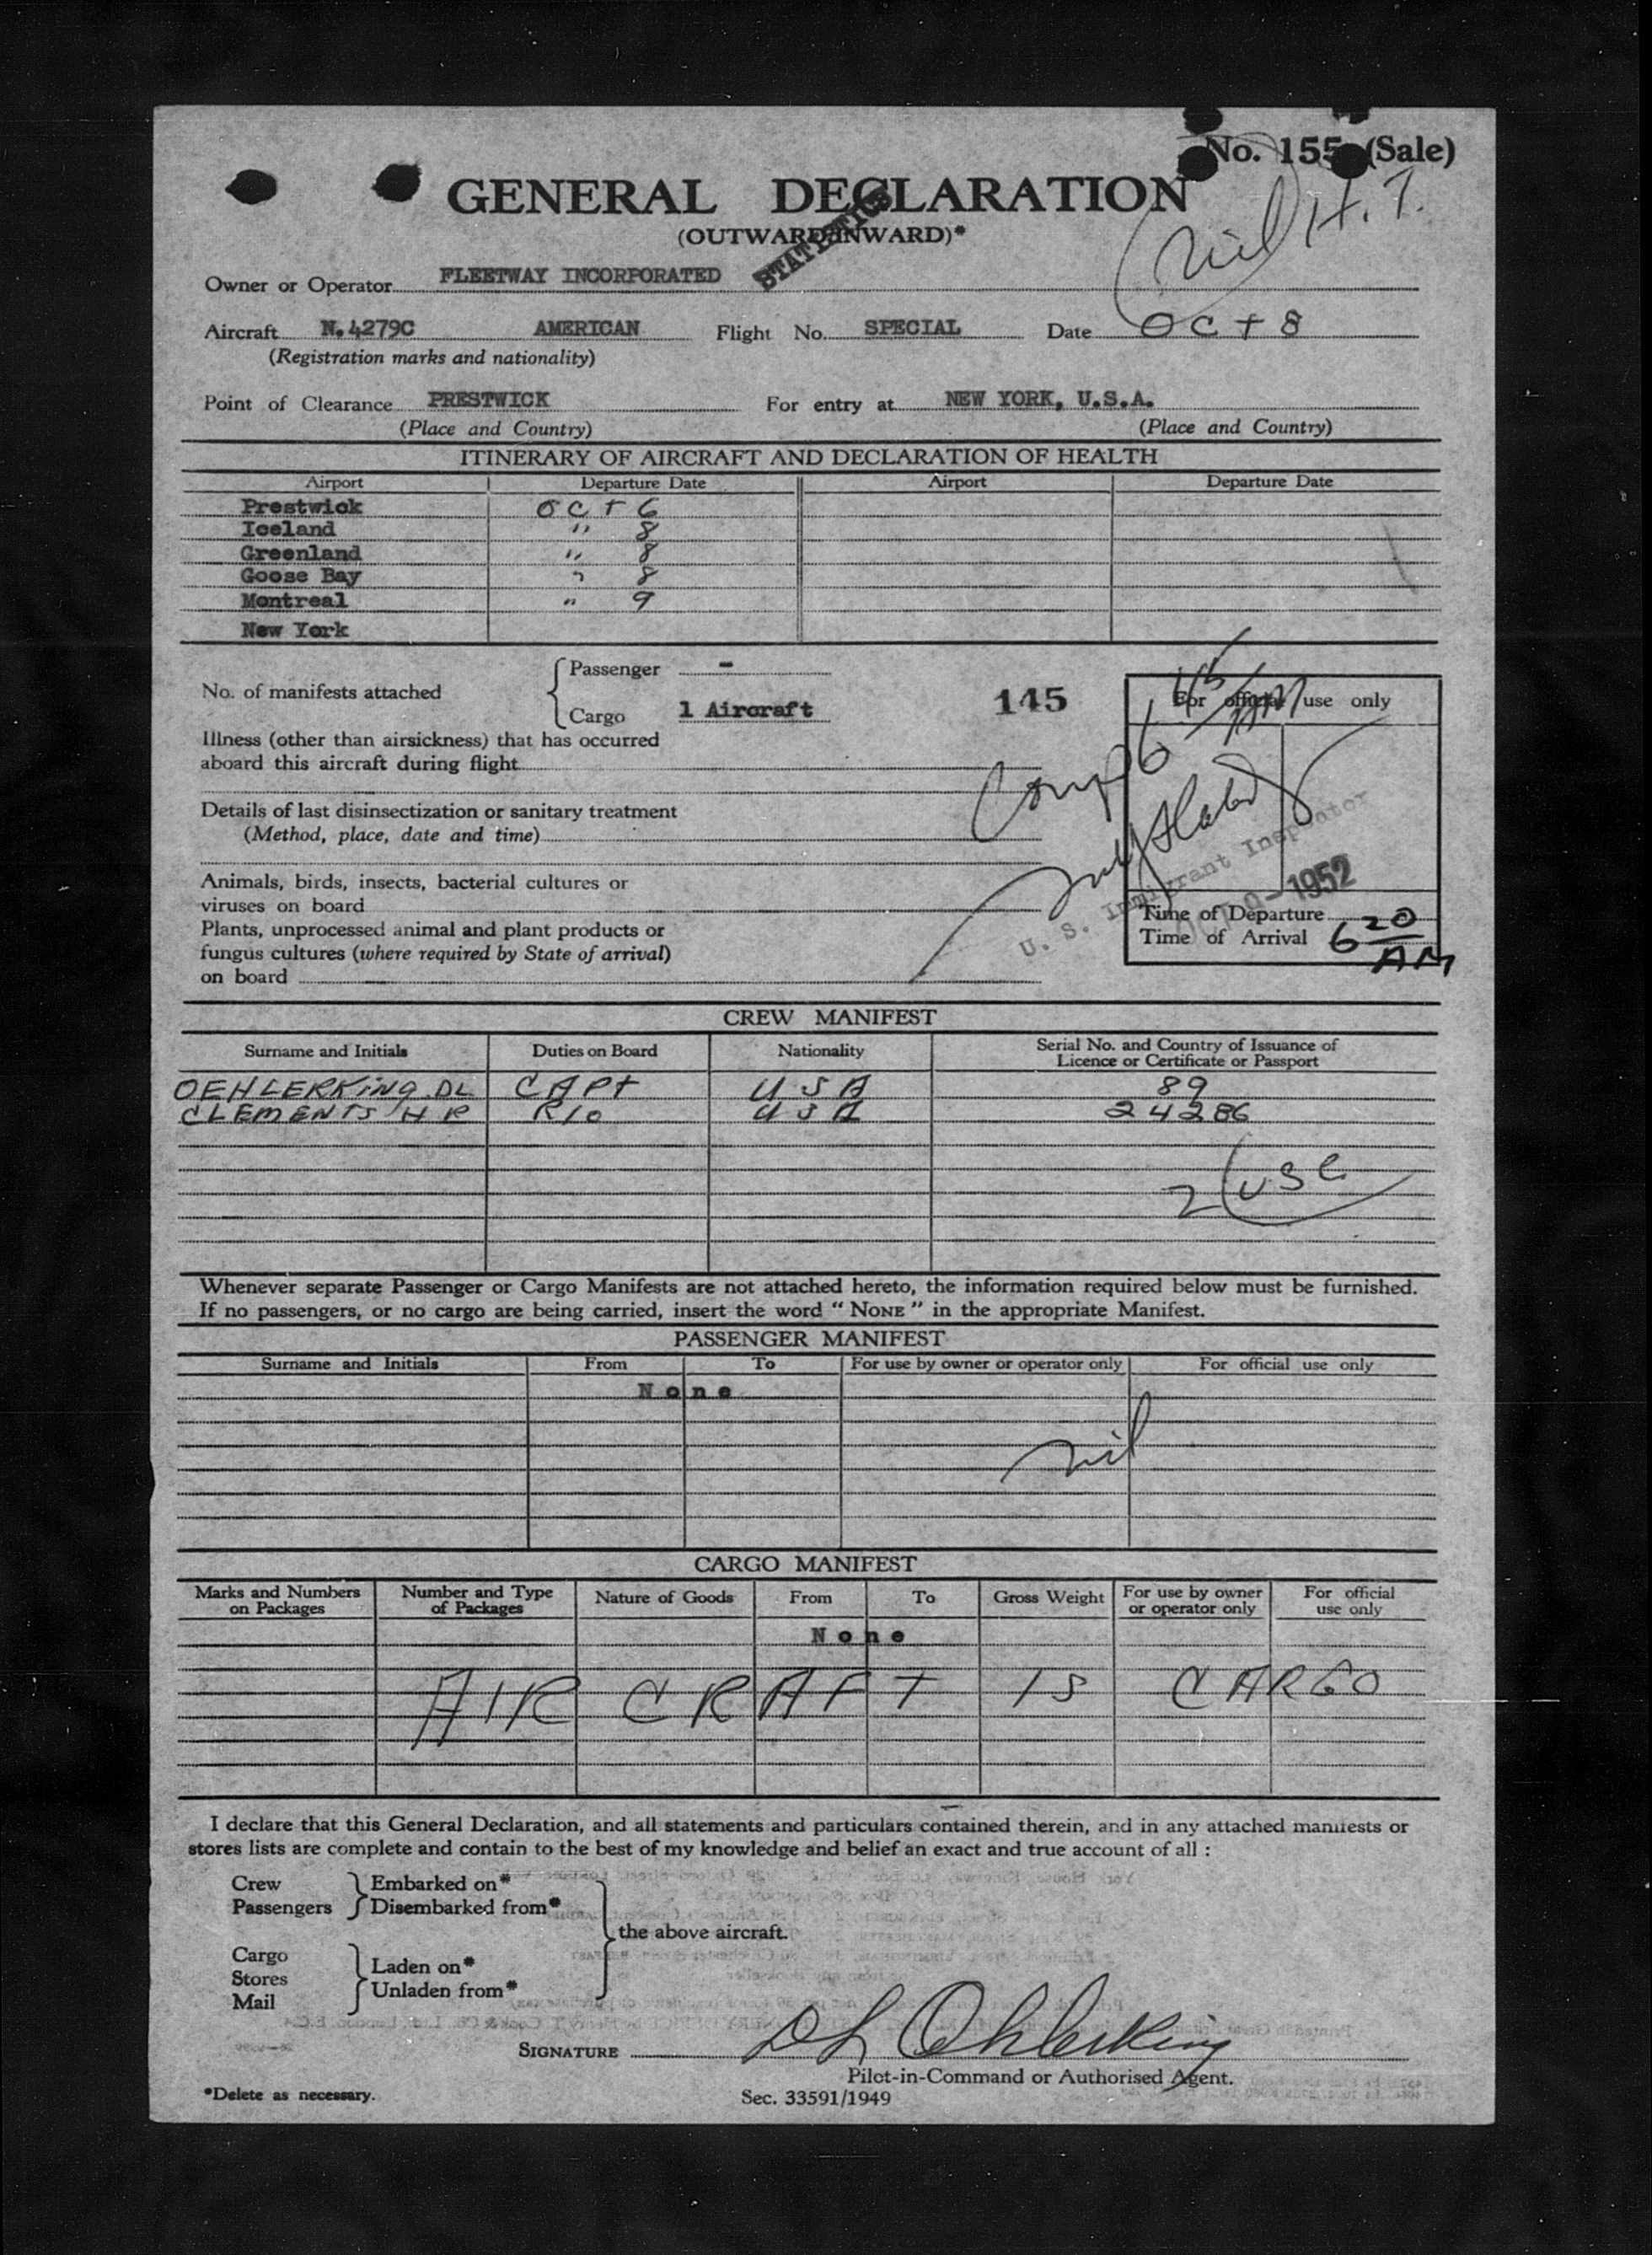 No. 155 (Sale)
GENERAL DECLARATION
(OUTWARD/INWARD)*
STATISTICS
Nil H.T.
Owner or Operator FLEETWAY INCORPORATED
Aircraft N.4279C AMERICAN Flight No. SPECIAL Date OCT 8
(Registration marks and nationality)
Point of Clearance PRESTWICK For entry at NEW YORK, U.S.A.
(Place and Country) (Place and Country)
ITINERARY OF AIRCRAFT AND DECLARATION OF HEALTH
Airport Departure Date Airport Departure Date
Prestwick OCT 6
Iceland " 8
Greenland " 8
Goose Bay " 8
Montreal " 9
New York
No. of manifests attached
Passenger -
Cargo 1 Aircraft
145
For official use only
Illness (other than airsickness) that has occurred
aboard this aircraft during flight
Details of last disinsectization or sanitary treatment
(Method, place, date and time)
Animals, birds, insects, bacterial cultures or
viruses on board
Plants, unprocessed animal and plant products or
fungus cultures (where required by State of arrival)
on board
Comp 6 45 AM
U. S. Immigrant Inspector
1952
Time of Departure
Time of Arrival 6 20 AM
CREW MANIFEST
Surname and Initials Duties on Board Nationality Serial No. and Country of Issuance of
Licence or Certificate or Passport
OEHLERKING DL CAPT USA 89
CLEMENTS H R R/O USA 24286
2 USC
Whenever separate Passenger or Cargo Manifests are not attached hereto, the information required below must be furnished.
If no passengers, or no cargo are being carried, insert the word "NONE" in the appropriate Manifest.
PASSENGER MANIFEST
Surname and Initials From To For use by owner or operator only For official use only
None
nil
CARGO MANIFEST
Marks and Numbers on Packages Number and Type of Packages Nature of Goods From To Gross Weight For use by owner or operator only For official use only
None
AIR CRAFT IS CARGO
I declare that this General Declaration, and all statements and particulars contained therein, and in any attached manifests or
stores lists are complete and contain to the best of my knowledge and belief an exact and true account of all :
Crew Embarked on*
Passengers Disembarked from*
the above aircraft.
Cargo
Stores Laden on*
Mail Unladen from*
SIGNATURE DL Oehlerking
Pilot-in-Command or Authorised Agent.
*Delete as necessary. Sec. 33591/1949